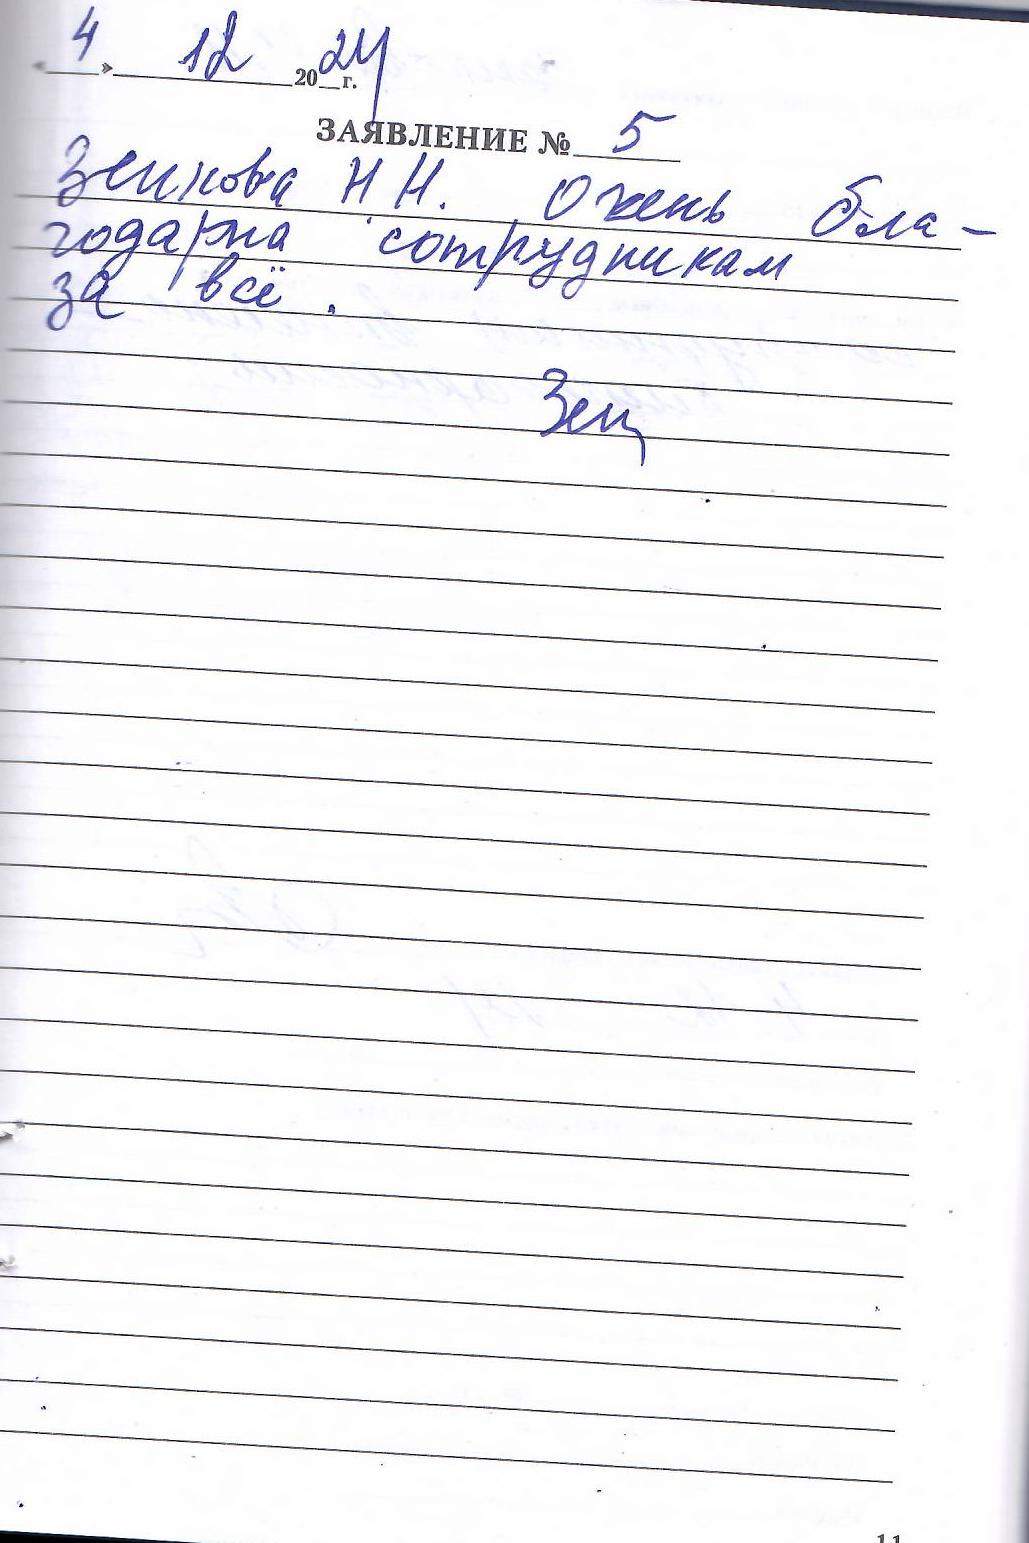 « 4 » 12 20 24 г.
ЗАЯВЛЕНИЕ № 5
Зенкова Н Н. Очень бла-
годарна сотрудникам
за всё.
11